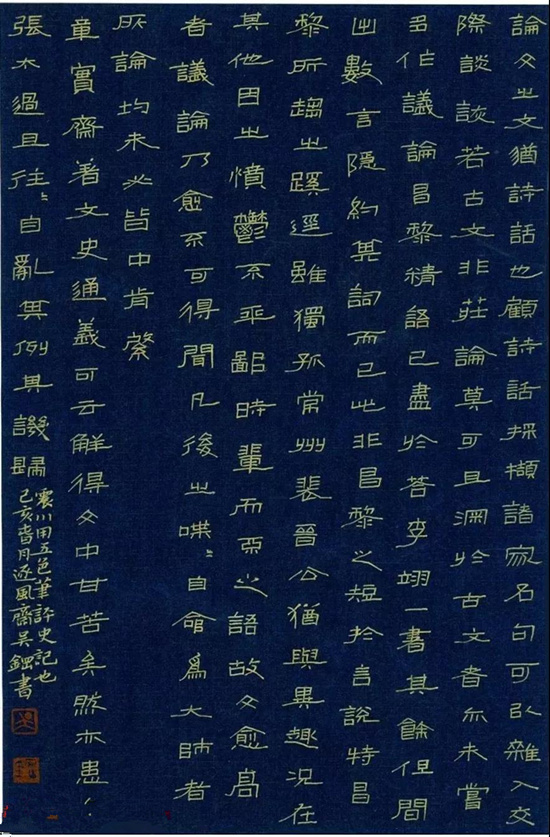 論文之文猶詩話也顧詩話採擷諸家名句可以雜入交
際談談若古文非莊論莫可且深於古文者亦未嘗
多作議論昌黎精語已盡於答李翊一書其餘但間
出數言隱約其詞而已此非昌黎之短於言說特昌
黎所趨之蹊逕雖獨孤常州裴晉公猶與異趣況在
其他因之憤鬱不平鄙時輩而亞之語故文愈高
者議論乃愈不可得聞凡後之喋〻自命爲大師者
厥論均未必皆中肯綮
章實齋著文史通義可云解得文中甘苦矣然亦患
張大過且往〻自亂其例其譏歸
震川用五色筆評史記也
己亥月逐風齋吳書